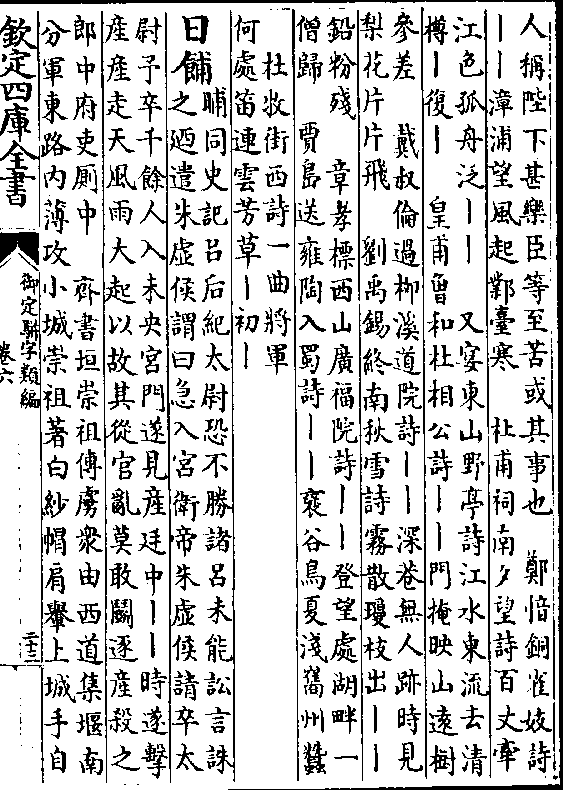 人稱陛下甚樂臣等至苦或其事也　鄭愔銅雀妓詩
｜｜漳浦望風起鄴臺寒　杜甫祠南夕望詩百丈牽
江色孤舟泛｜｜　又宴東山野亭詩江水東流去清
樽｜復｜　皇甫曾和杜相公詩｜｜門掩映山遠樹
參差　戴叔倫過柳溪道院詩｜｜深巷無人跡時見
梨花片片飛　劉禹錫終南秋雪詩霧散瓊枝出｜｜
鉛粉殘　章孝標西山廣福院詩｜｜登望處湖畔一
僧歸　賈島送雍陶入蜀詩｜｜褒谷鳥夏淺雟州蠶
杜牧街西詩一曲將軍
何處笛連雲芳草｜初｜
日餔　晡同史記呂后紀太尉恐不勝諸呂未能訟言誅
之廼遣朱虛侯謂曰急入宮衛帝朱虛侯請卒太
尉予卒千餘人入未央宮門遂見産廷中｜｜時遂擊
産産走天風雨大起以故其從官亂莫敢鬭逐産殺之
郎中府吏厠中　齊書垣崇祖傳虜衆由西道集堰南
分軍東路內薄攻小城崇祖著白紗帽肩轝上城手自
欽定四庫全書
御定駢字類編
卷六
二十三